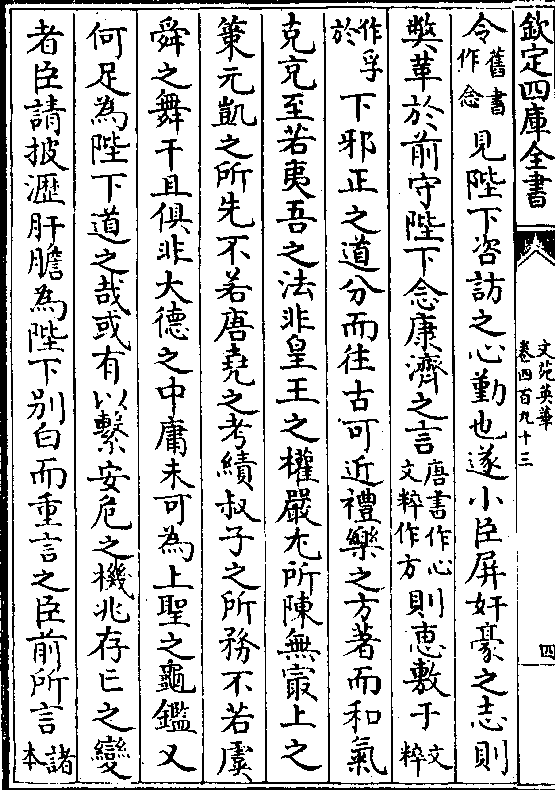 欽定四庫全書
文苑英華
卷四百九十三
四
令舊書作念見陛下咨訪之心勤也遂小臣屏奸豪之志則
獘革於前守陛下念康濟之言唐書作心文粹作方則惠敷于文粹
作孚於下邪正之道分而往古可近禮樂之方著而和氣
克充至若夷吾之法非皇王之權嚴尤所陳無㝡上之
䇿元凱之所先不若唐堯之考績叔子之所務不若虞
舜之舞干且俱非大德之中庸未可為上聖之龜鑑又
何足為陛下道之哉或有以繫安危之機兆存亡之變
者臣請披瀝肝膽為陛下別白而重言之臣前所言諸本